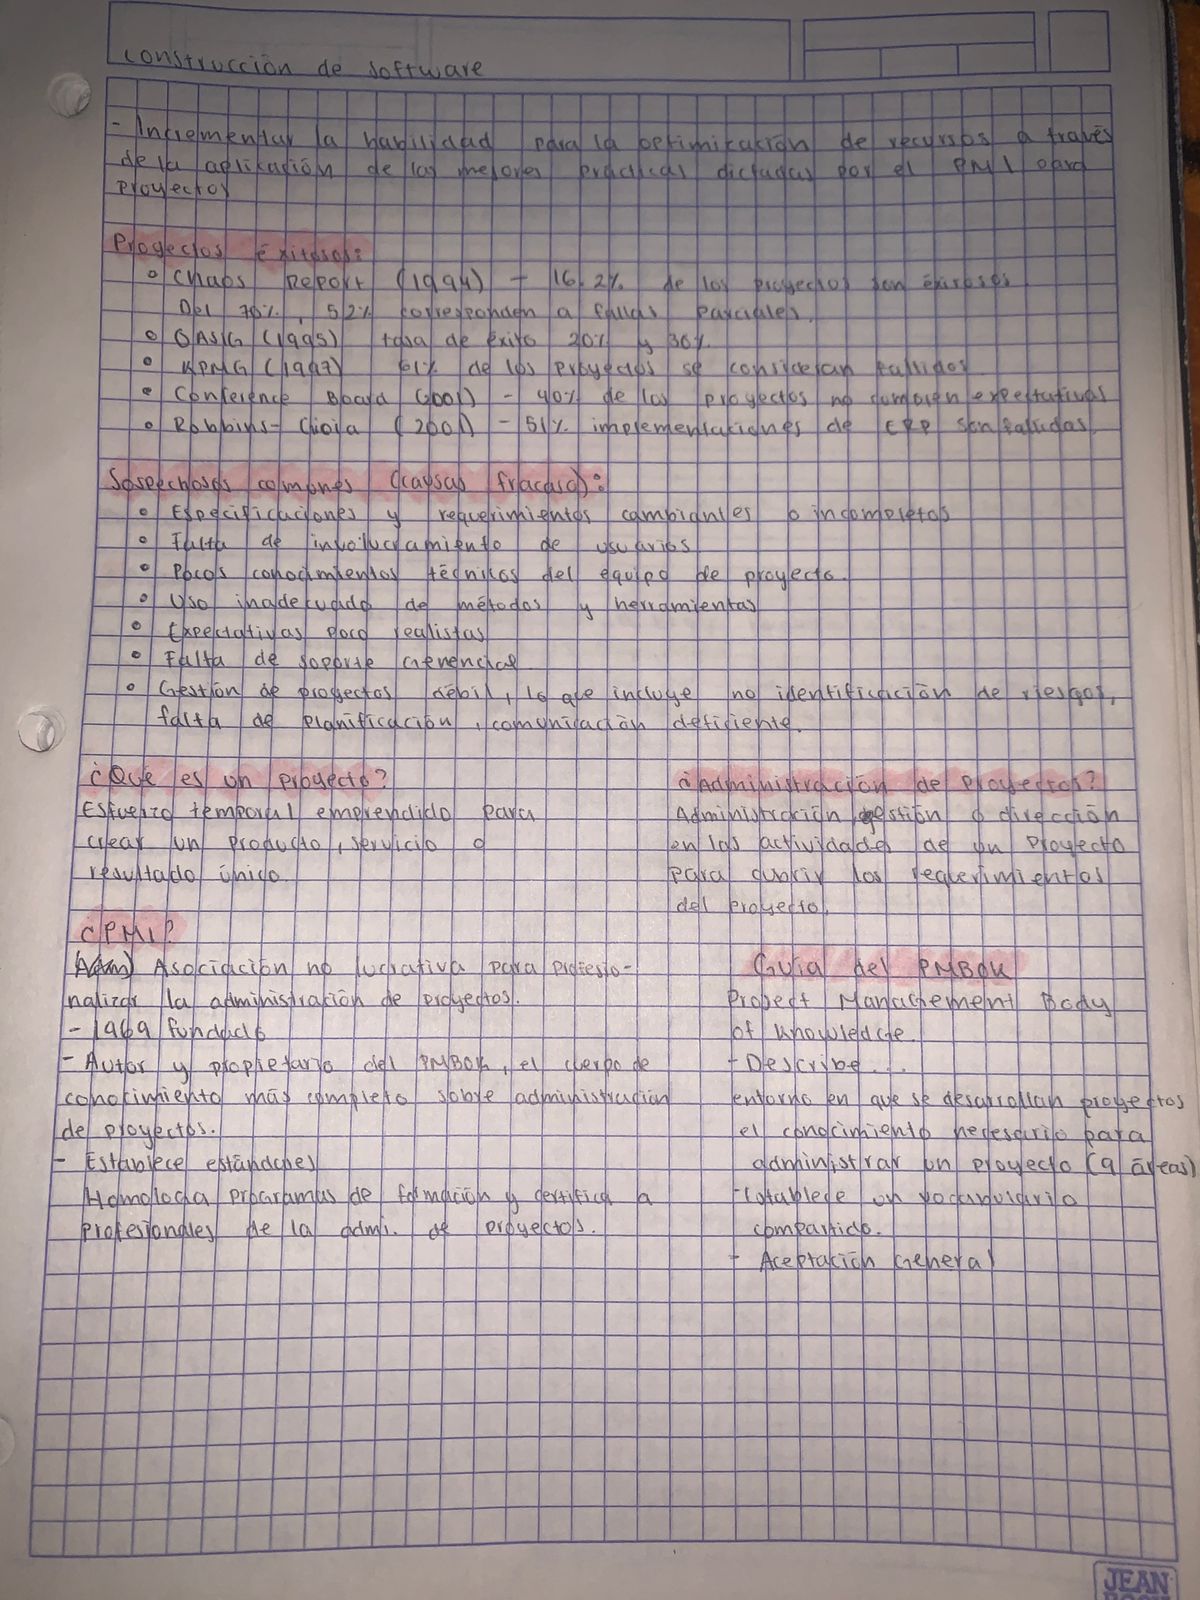 Construcción de Software
- Incrementar la habilidad para la optimización de recursos a través
de la aplicación de las mejores prácticas dictadas por el PMI para
proyectos
Proyectos éxitosos:
° Chaos Report (1994) - 16.2% de los proyectos son éxitosos
Del 70%, 52% corresponden a fallas parciales.
° OASIG (1995) tasa de éxito 20% y 30%
° KPMG (1997) 61% de los proyectos se consideran fallidos
° Conference Board (2001) - 40% de los proyectos no cumplen expectativas
° Robbins-Gioia (2001) - 51% implementaciones de ERP son fallidas
Sospechosos comunes (causas fracaso):
° Especificaciones y requerimientos cambiantes o incompletos
° Falta de involucramiento de usuarios
° Pocos conocimientos técnicos del equipo de proyecto.
° Uso inadecuado de métodos y herramientas
° Expectativas poco realistas
° Falta de soporte Gerencial
° Gestión de proyectos débil, lo que incluye no identificación de riesgos,
falta de planificación, comunicación deficiente.
¿Qué es un proyecto?
Esfuerzo temporal emprendido para
crear un producto, servicio o
resultado único.
¿Administración de Proyectos?
Administración, gestión o dirección
en las actividades de un Proyecto
para cubrir los requerimientos
del proyecto.
¿PMI?
Asociación no lucrativa para profesio-
nalizar la administración de proyectos.
- 1969 fundado
- Autor y propietario del PMBOK, el cuerpo de
conocimiento más completo sobre administración
de proyectos.
- Establece estándares
Homologa programas de formación y certifica a
profesionales de la admi. de proyectos.
Guía del PMBOK
Project Management Body
of Knowledge.
- Describe...
entorno en que se desarrollan proyectos
el conocimiento necesario para
administrar un proyecto (9 áreas)
- Establece un vocabulario
compartido.
- Aceptación General
JEAN